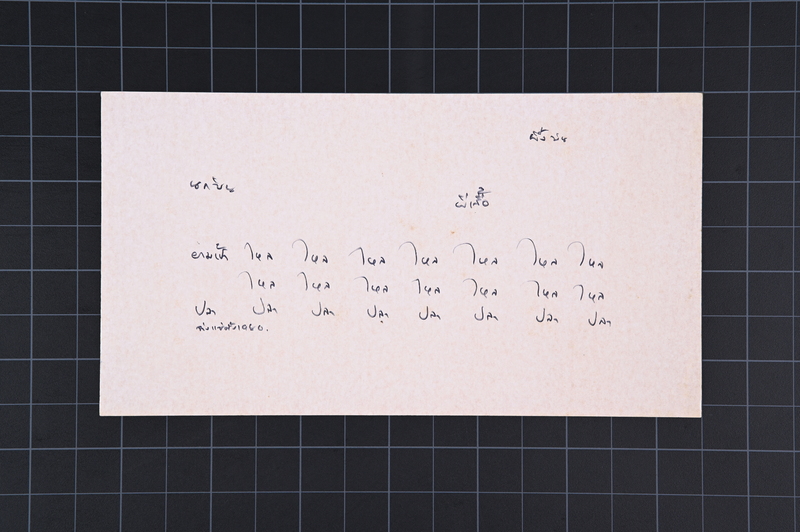 ผึ้งบิน
นกบิน
ผีเสื้อ
ยามเช้า ไหล ไหล ไหล ไหล ไหล ไหล ไหล
ไหล ไหล ไหล ไหล ไหล ไหล ไหล
ปลา ปลา ปลา ปลา ปลา ปลา ปลา ปลา